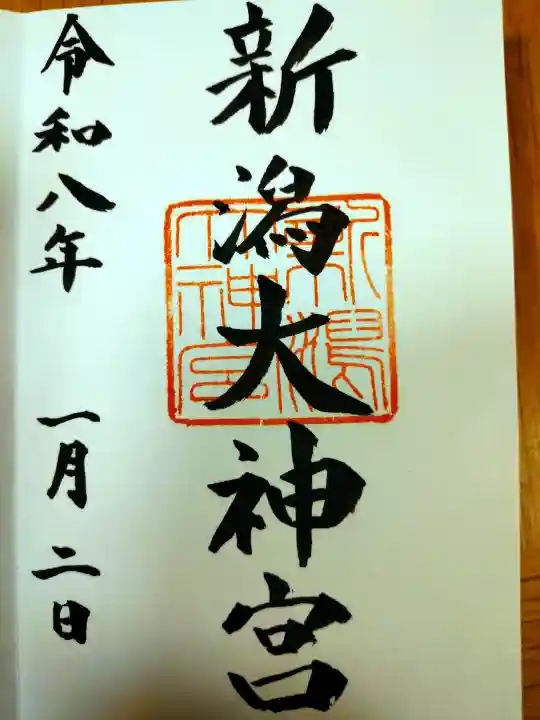 新潟大神宮
令和八年 一月二日